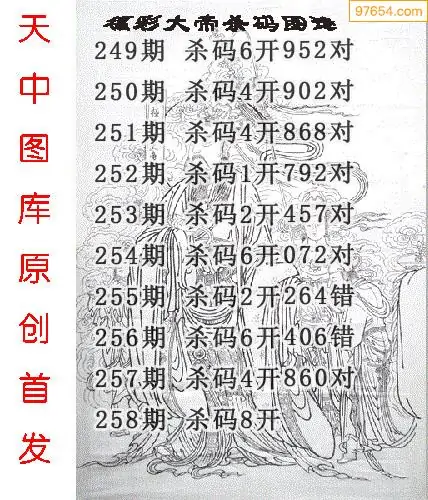 97654.com
福彩大帝杀码图谜
249期 杀码6开952对
250期 杀码4开902对
251期 杀码4开868对
252期 杀码1开792对
253期 杀码2开457对
254期 杀码6开072对
255期 杀码2开264错
256期 杀码6开406错
257期 杀码4开860对
258期 杀码8开
天中图库原创首发